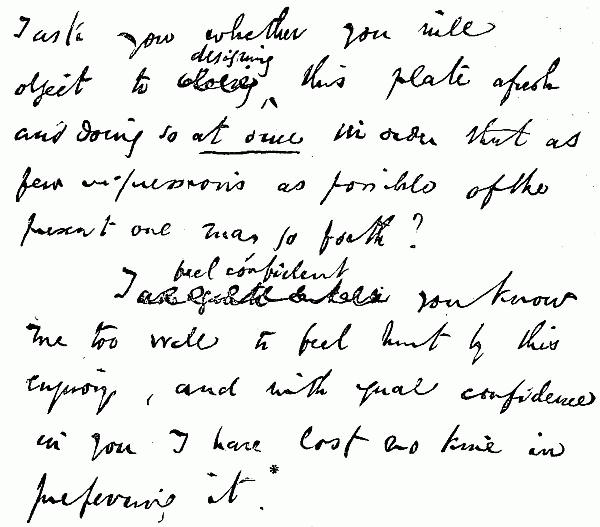 I ask you whether you will
designing
object to this plate afresh
and doing so at once in order that as
few impressions as possible of the
present one may go forth?
feel confident
I you know
me too well to feel hurt by this
enquiry, and with equal confidence
in you I have lost no time in
preferring it.*